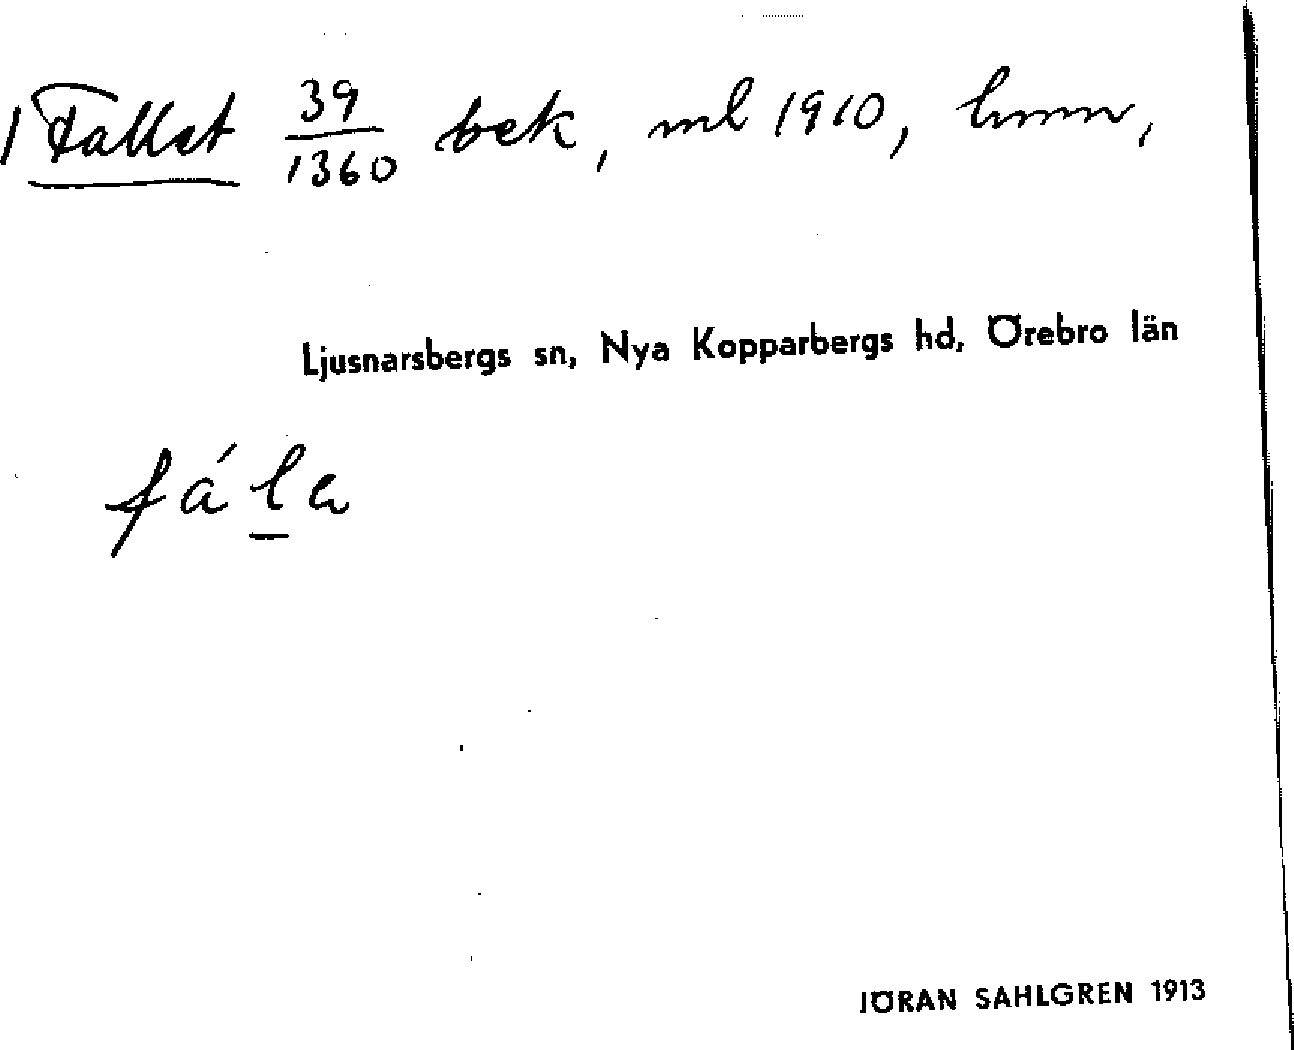 1 Fallet 39/1360 bek, ml 1910, hmn,
Ljusnarsbergs sn, Nya Kopparbergs hd, Örebro län
fá l̲a
JÖRAN SAHLGREN 1913